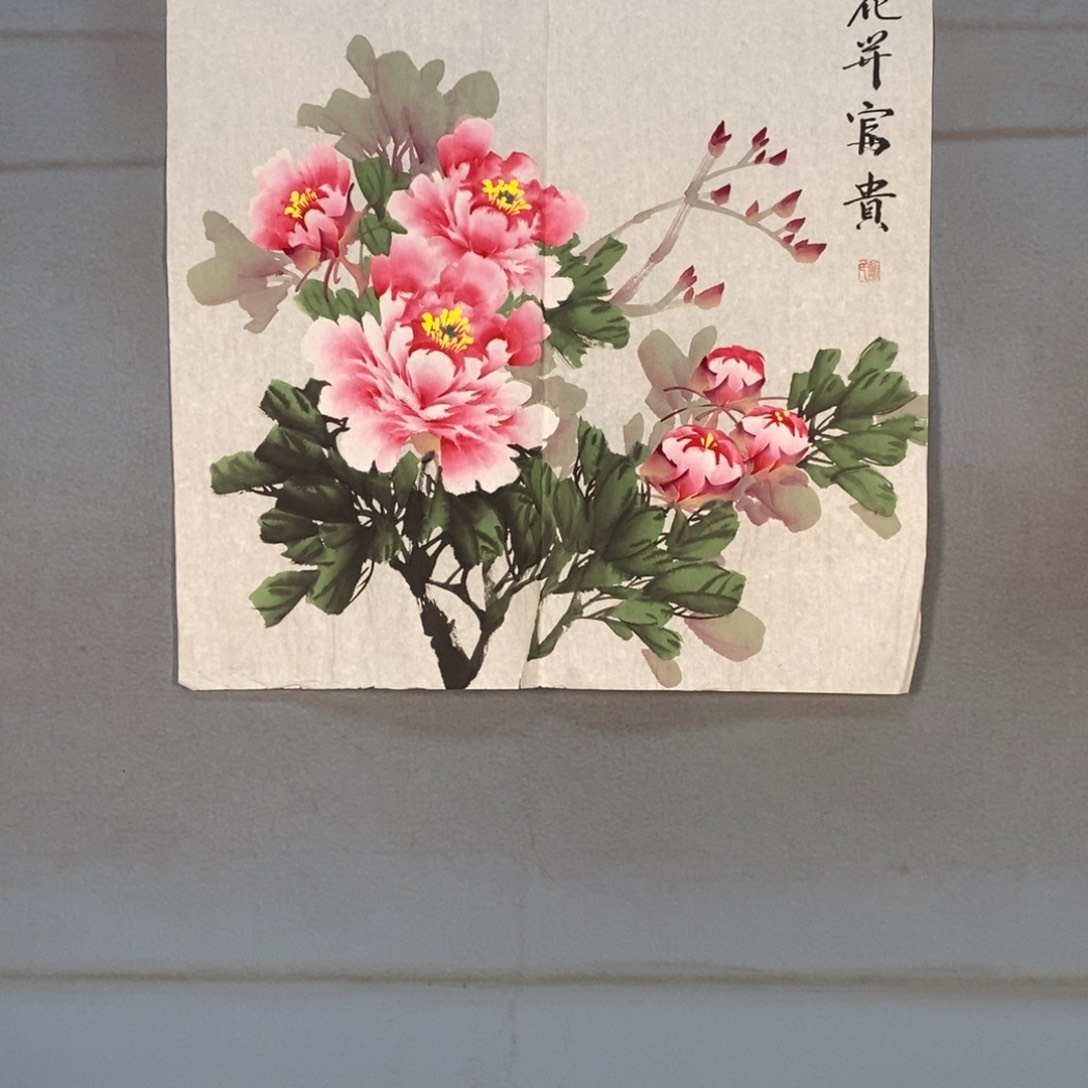 花开富貴